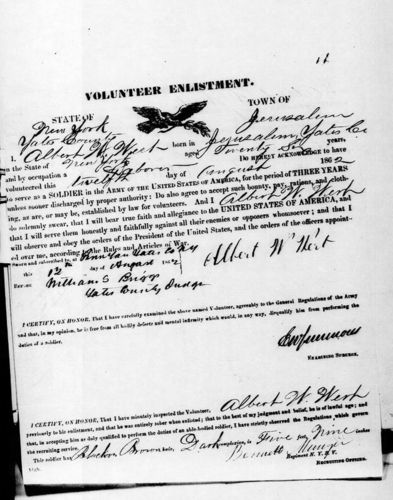 VOLUNTEER ENLISTMENT.
STATE OF TOWN OF
New York Jerusalem
Yates County
I, Albert W. West born in Jerusalem, Yates Co
in the State of New York aged Twenty years,
and by occupation a Laborer DO HEREBY ACKNOWLEDGE to have
volunteered this Twelfth day of August 1862
to serve as a SOLDIER in the ARMY OF THE UNITED STATES OF AMERICA, for the period of THREE YEARS
unless sooner discharged by proper authority: Do also agree to accept such bounty, pay, rations, and cloth-
ing, as are, or may be, established by law for volunteers. And I Albert W. West
do solemnly swear, that I will bear true faith and allegiance to the UNITED STATES OF AMERICA, and
that I will serve them honestly and faithfully against all their enemies or opposers whomsoever; and that I
will observe and obey the orders of the President of the United States, and the orders of the officers appoint-
ed over me, according to the Rules and Articles of War.
Sworn and subscribed to, at Penn Yan Yates Co NY
this 12 day of August 1862 Albert W. West
BEFORE William S Briggs
Yates County Judge
I CERTIFY, ON HONOR, That I have carefully examined the above named Volunteer, agreeably to the General Regulations of the Army
and that, in my opinion, he is free from all bodily defects and mental infirmity which would, in any way, disqualify him from performing the
duties of a soldier.
EXAMINING SURGEON.
I CERTIFY, ON HONOR, That I have minutely inspected the Volunteer, Albert W. West
previously to his enlistment, and that he was entirely sober when enlisted; that to the best of my judgment and belief, he is of lawful age; and
that, in accepting him as duly qualified to perform the duties of an able-bodied soldier, I have strictly observed the Regulations which govern
the recruiting service. This soldier has Black eyes, Brown hair, Dark complexion, is Five feet Nine inches
high. Bennett
Regiment N. Y. S. V.
RECRUITING OFFICER.